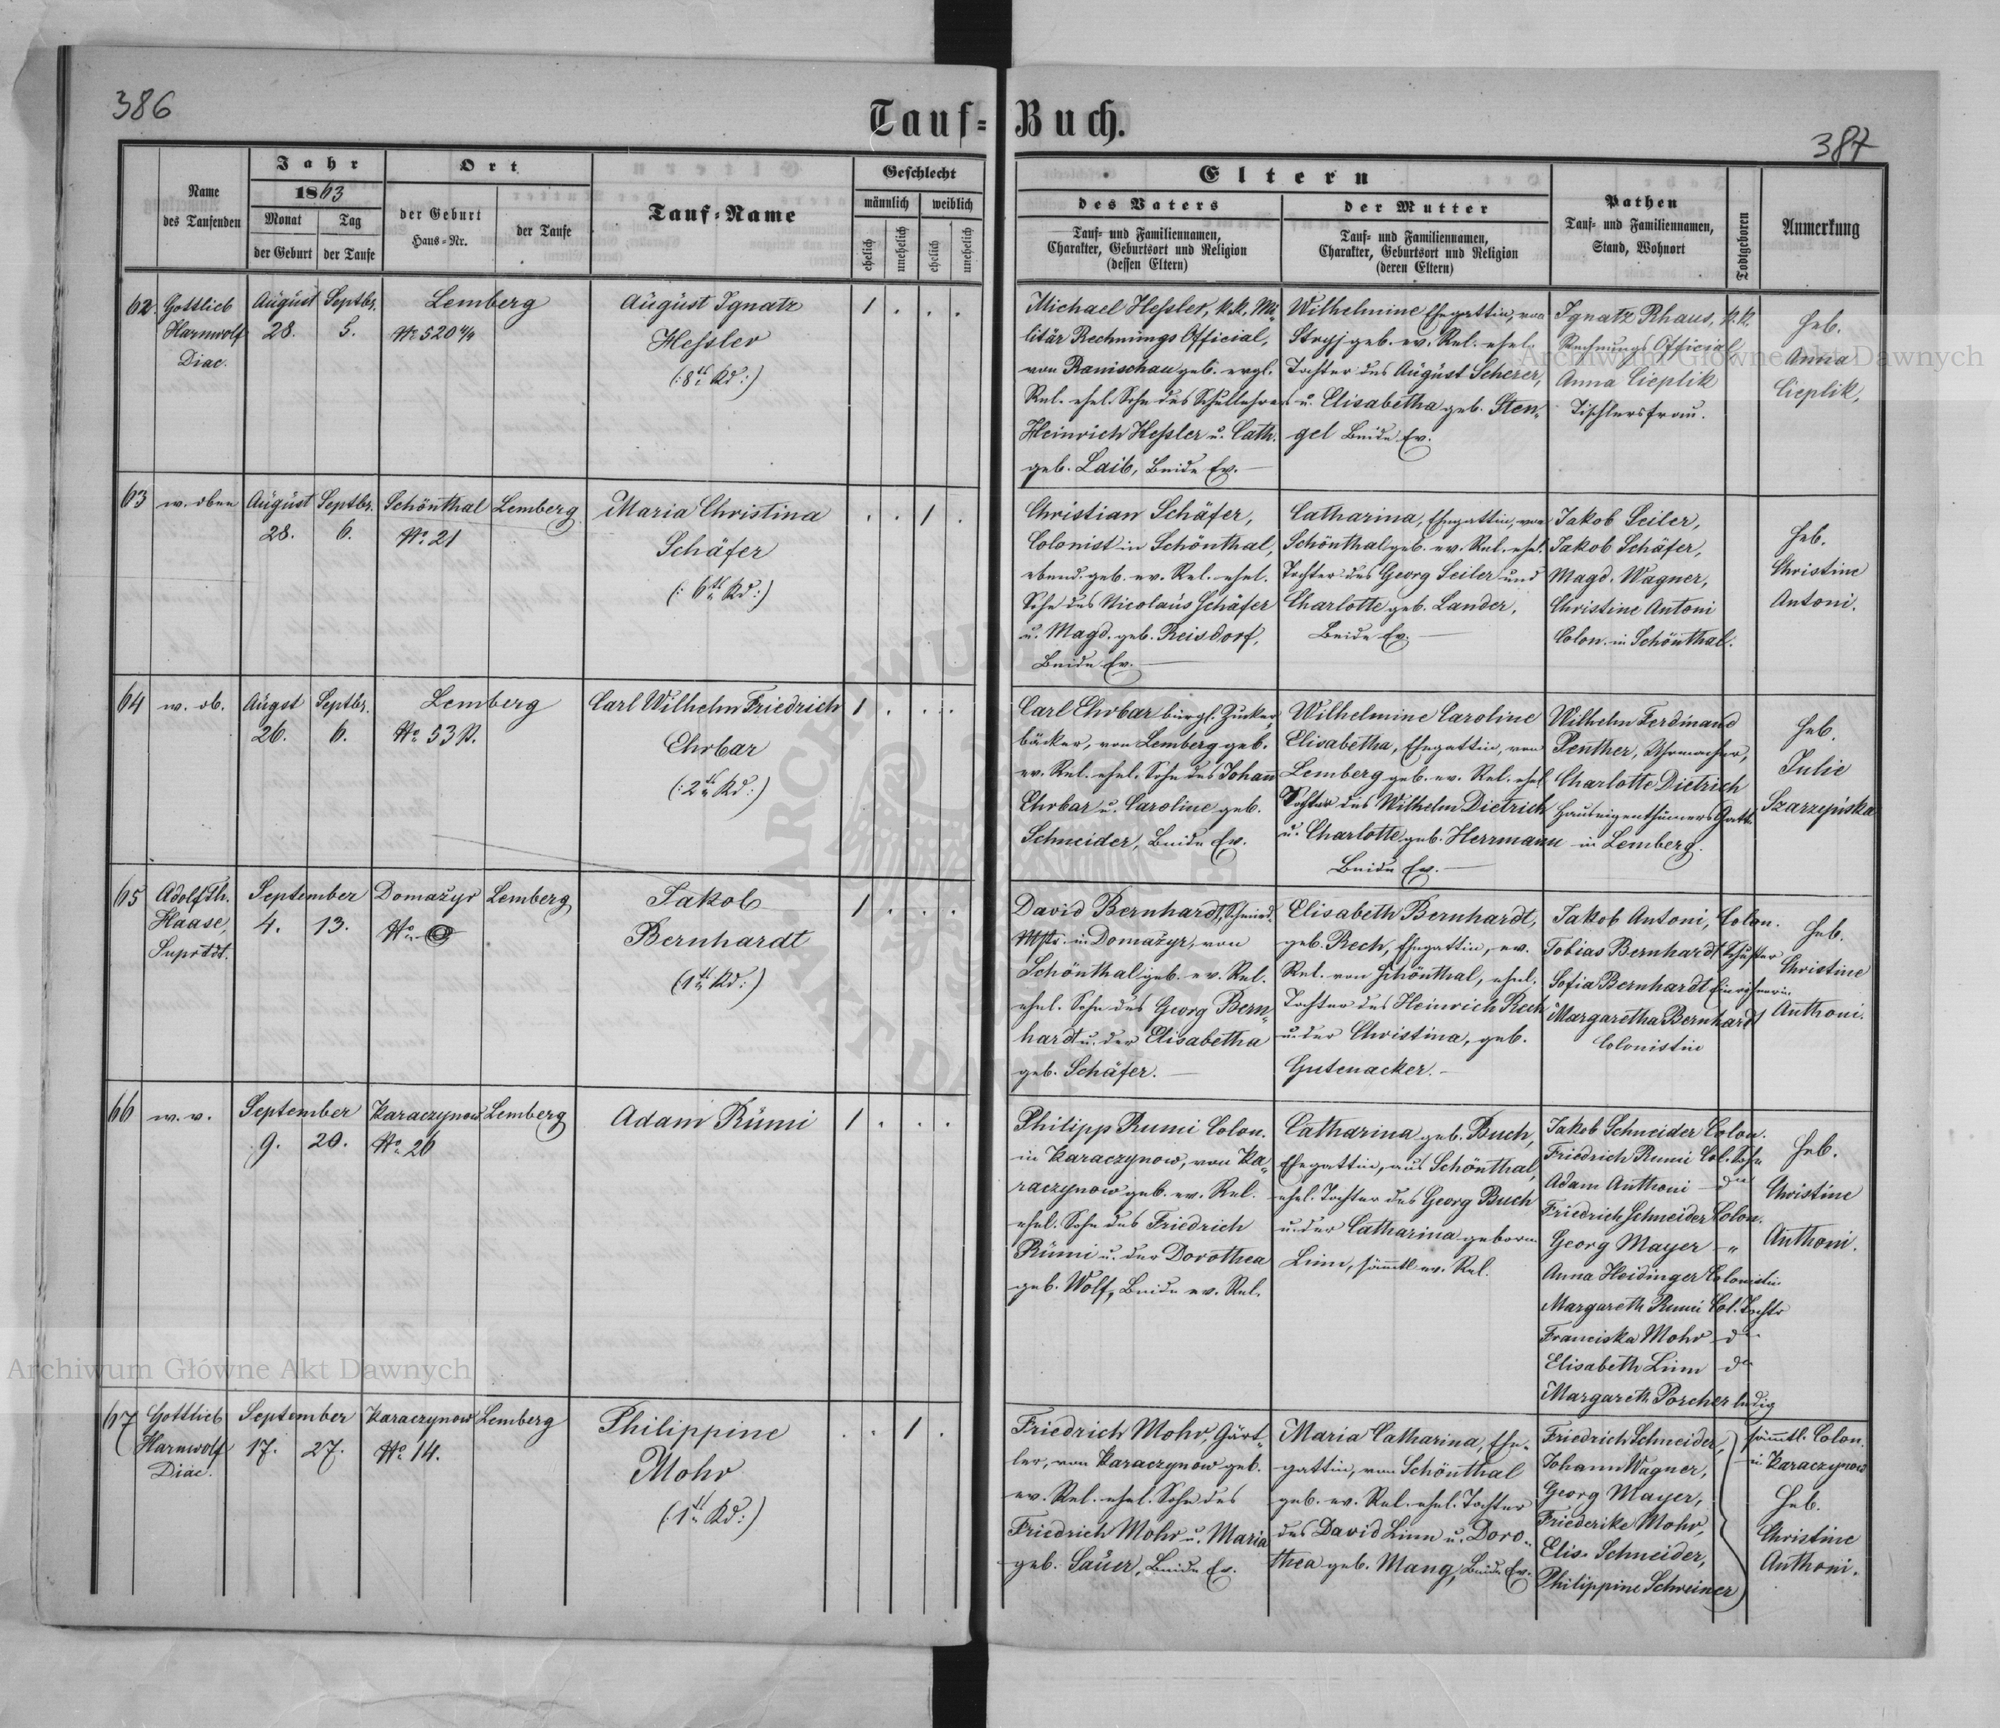 386
Tauf-Buch.
387
Name
des Taufenden
Jahr
1863
Monat
der Geburt
Tag
der Taufe
Ort
der Geburt
Haus-Nr.
der Taufe
Tauf-Name
Geschlecht
männlich
weiblich
ehelich
unehelich
ehelich
unehelich
Eltern
des Vaters
Tauf- und Familiennamen,
Charakter, Geburtsort und Religion
(dessen Eltern)
der Mutter
Tauf- und Familiennamen,
Charakter, Geburtsort und Religion
(deren Eltern)
Pathen
Tauf- und Familiennamen,
Stand, Wohnort
Todtgeboren
Anmerkung
62.
Gottlieb
Harnwolf
Diac.
August
28.
Septbr.
5.
Lemberg
No 520 4/4
August Ignatz
Hessler
(:8tes Kd:)
1 . . .
Michael Hessler, k.k. Mi-
litär Rechnungs Official,
von Ranischau geb. evgl.
Rel. ehel. Sohn des Schullehrers
Heinrich Hessler u. Cath.
geb. Laib, Beide Ev.
Wilhelmine Ehegattin, von
Stryj geb. ev. Rel. ehel.
Tochter des August Scherer,
u. Elisabetha geb. Sten-
gel Beide Ev.
Ignatz Rhaus, k.k.
Rechnungs Official
Anna Cieplik
Tischlersfrau.
Heb.
Anna
Cieplik.
63
w. oben
August
28.
Septbr.
6.
Schönthal
No 21
Lemberg
Maria Christina
Schäfer
(:6tes Kd:)
. . 1 .
Christian Schäfer,
Colonist in Schönthal,
ebend. geb. ev. Rel. ehel.
Sohn des Nicolaus Schäfer
u. Magd. geb. Reisdorf,
Beide Ev.
Catharina, Ehegattin, von
Schönthal geb. ev. Rel. ehel.
Tochter des Georg Seiler und
Charlotte geb. Lander,
Beide Ev.
Jakob Seiler,
Jakob Schäfer,
Magd. Wagner,
Christine Antoni
Colon. in Schönthal.
Heb.
Christine
Antoni.
64
w. ob.
Augst
26.
Septbr.
6.
Lemberg
No 53
Carl Wilhelm Friedrich
Ehrbar
(:2tes Kd:)
1 . . .
Carl Ehrbar bürgl. Zucker-
bäcker, von Lemberg geb.
ev. Rel. ehel. Sohn des Johann
Ehrbar u. Caroline geb.
Schneider, Beide Ev.
Wilhelmine Caroline
Elisabetha, Ehegattin, von
Lemberg geb. ev. Rel. ehel
Tochter des Wilhelm Dietrich
u. Charlotte geb. Herrmann
Beide Ev.
Wilhelm Ferdinand
Penther, Uhrmacher,
Charlotte Dietrich
Hauseigenthümers Gatt.
in Lemberg.
Heb.
Julie
Szarzyńska
65
Adolf Th.
Haase,
Suprtdt.
September
4. 13.
Domazyr
No
Lemberg
Jakob
Bernhardt
(1tes Kd:)
1 . . .
David Bernhardt, Schmied-
Mstr. in Domazyr, von
Schönthal geb. ev. Rel.
ehel. Sohn des Georg Bern-
hardt u. der Elisabetha
geb. Schäfer.
Elisabeth Bernhardt,
geb. Rech, Ehegattin, ev.
Rel. von Schönthal, ehel.
Tochter des Heinrich Rech
u. der Christina, geb.
Gutenacker.
Jakob Antoni, Colon.
Tobias Bernhardt Schuster
Sofia Bernhardt Einwohnerin
Margaretha Bernhardt
Colonistin
Heb.
Christine
Anthoni.
66
w. v.
September
9. 20.
Karaczynow
No 20
Lemberg
Adam Rümi
1 . . .
Philipp Rumi Colon.
in Karaczynow, von Ka-
raczynow geb. ev. Rel.
ehel. Sohn des Friedrich
Rümi u. der Dorothea
geb. Wolf, Beide ev. Rel.
Catharina geb. Buch,
Ehegattin, aus Schönthal,
ehel. Tochter des Georg Buch
u. der Catharina geborn.
Linn, sämmtl. ev. Rel.
Jakob Schneider Colon.
Friedrich Rumi Col. Sohn
Adam Anthoni - dto
Friedrich Schneider Colon.
Georg Mayer - "
Anna Heidinger Colonistin
Margareth Rumi Col. Tochtr
Franciska Mohr - dto
Elisabeth Linn dto
Margareth Porcher ledig
Heb.
Christine
Anthoni.
67
Gottlieb
Harnwolf
Diac.
September
17. 27.
Karaczynow
No 14.
Lemberg
Philippine
Mohr
(:1tes Kd:)
. . 1 .
Friedrich Mohr, Gärt-
ler, von Karaczynow geb.
ev. Rel. ehel. Sohn des
Friedrich Mohr u. Maria
geb. Sauer, Beide Ev.
Maria Catharina, Ehe-
gattin, von Schönthal
geb. ev. Rel. ehel. Tochter
des David Linn u. Doro-
thea geb. Mang, Beide Ev.
Friedrich Schneider,
Johann Wagner,
Georg Mayer,
Friederike Mohr,
Elis. Schneider,
Philippine Schreiner
sämmtl. Colon.
in Karaczynow
Heb.
Christine
Anthoni.
Archiwum Główne Akt Dawnych
Archiwum Główne Akt Dawnych